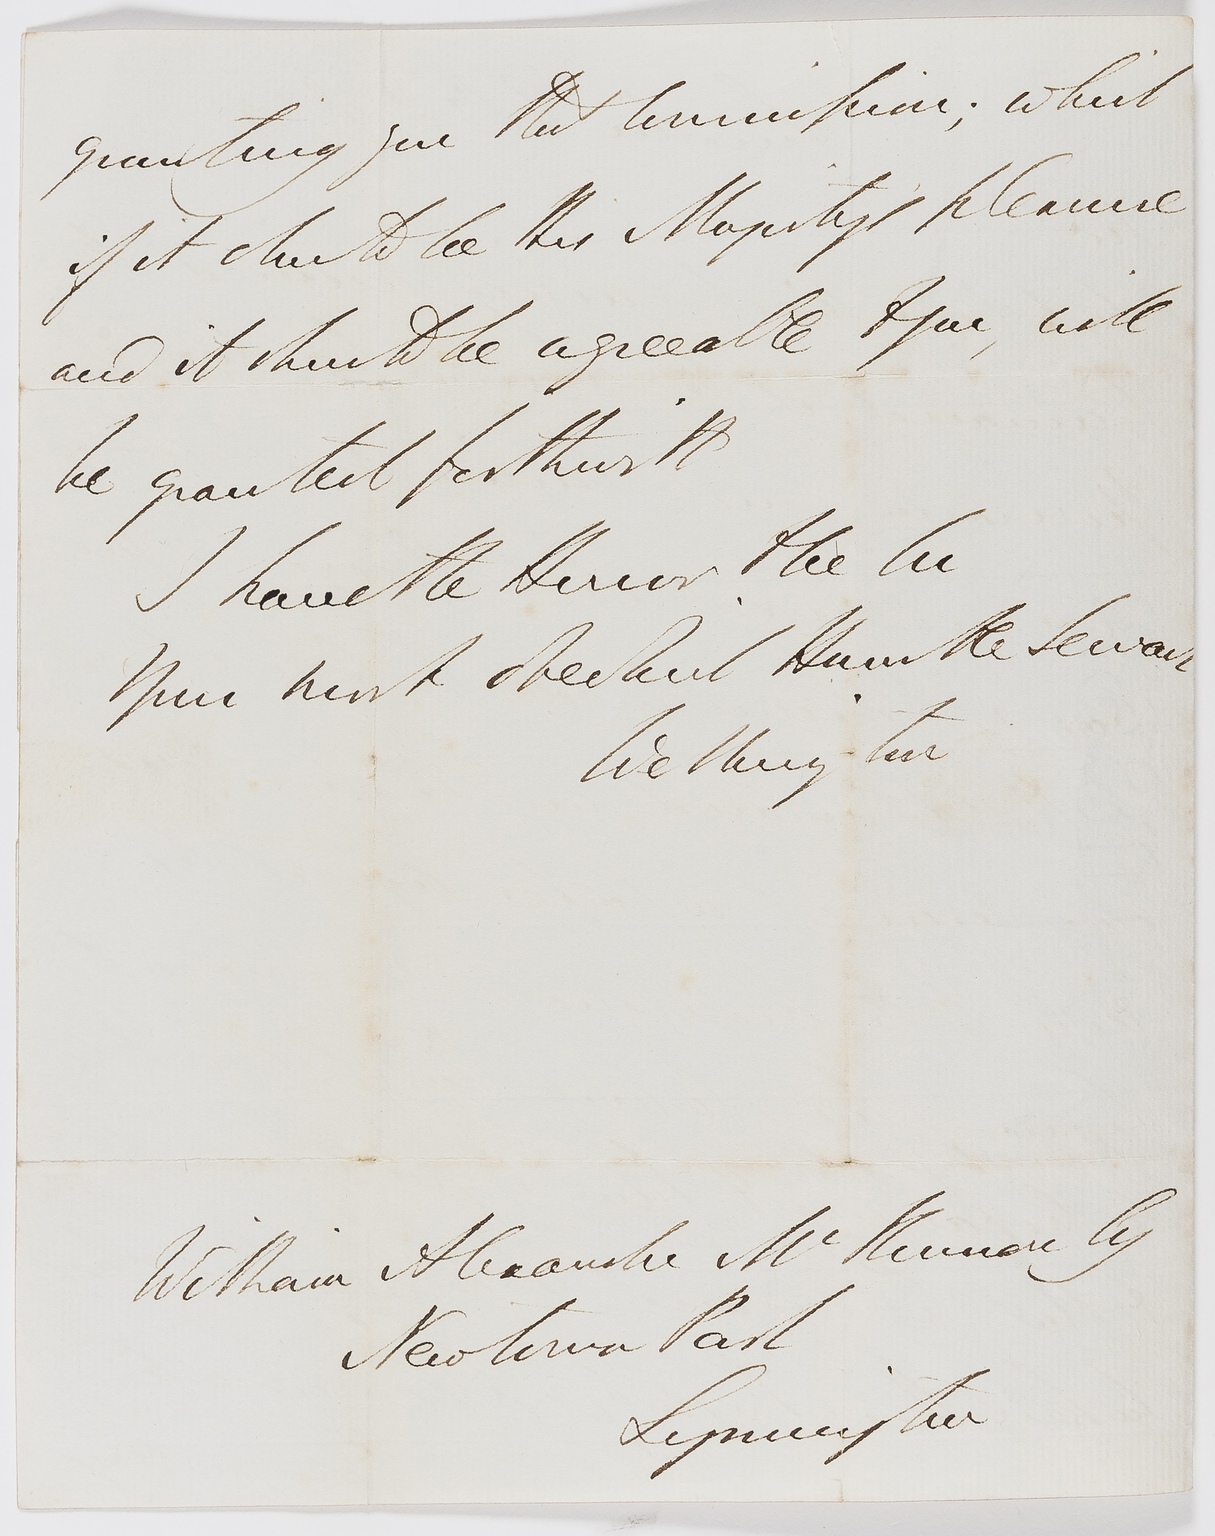 granting you that Commission; which
if it should be His Majesty's pleasure
and it should be agreeable to you, will
be granted forthwith
I have the Honor to be
Your most obedient Humble Servant
Wellington
William Alexander McKinnon Esq
Newtown Park
Lymington